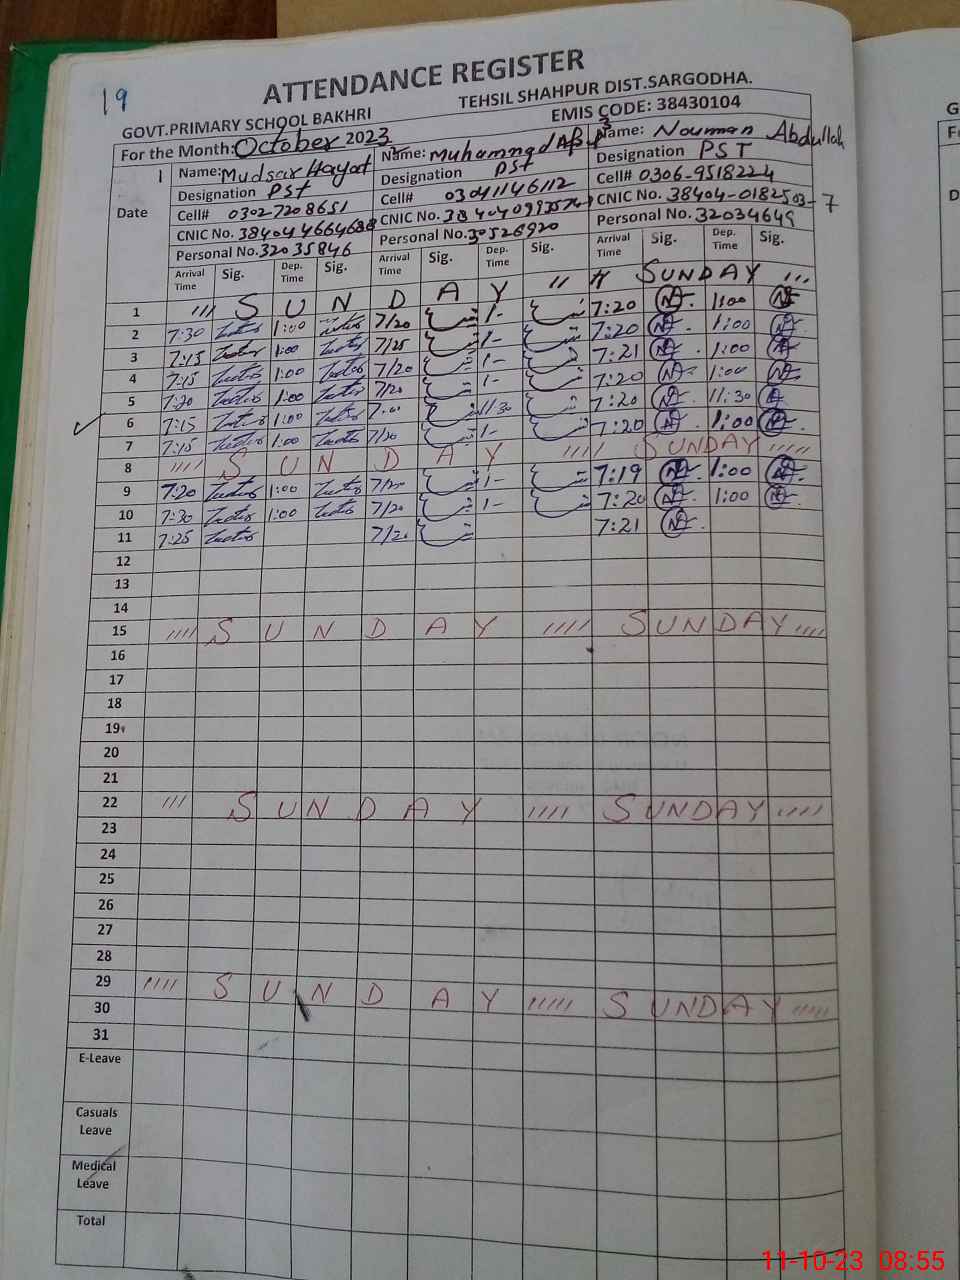 19
ATTENDANCE REGISTER
GOVT.PRIMARY SCHOOL BAKHRI TEHSIL SHAHPUR DIST.SARGODHA.
For the Month: October 2023 EMIS CODE: 38430104
Date
1 Name: Mudsar Hayat
Designation PST
Cell# 0302-7208651
CNIC No.
Personal No. 32035846
2 Name: Muhammad
Designation PST
Cell# 03041146112
CNIC No.
Personal No. 30526920
3 Name: Nouman Abdullah
Designation PST
Cell# 0306-9518224
CNIC No. 38404-0182503-7
Personal No. 32034649
Arrival Time Sig. Dep. Time Sig. Arrival Time Sig. Dep. Time Sig. Arrival Time Sig. Dep. Time Sig.
1 SUNDAY SUNDAY
2 7:30 1:00 7/20 1- 7:20 1:00
3 7:15 1:00 7/25 1- 7:20 1:00
4 7:15 1:00 7/20 1- 7:21 1:00
5 7:20 1:00 7/20 1- 7:20 1:00
6 7:15 1:00 11:30 7:20 11:30
7 7:15 1:00 7/20 1- 7:20 1:00
8 SUNDAY SUNDAY
9 7:20 1:00 7/20 1- 7:19 1:00
10 7:30 1:00 7/20 1- 7:20 1:00
11 7:25 7/20 7:21
12
13
14
15 SUNDAY SUNDAY
16
17
18
19
20
21
22 SUNDAY SUNDAY
23
24
25
26
27
28
29 SUNDAY SUNDAY
30
31
E-Leave
Casuals Leave
Medical Leave
Total
11-10-23 08:55